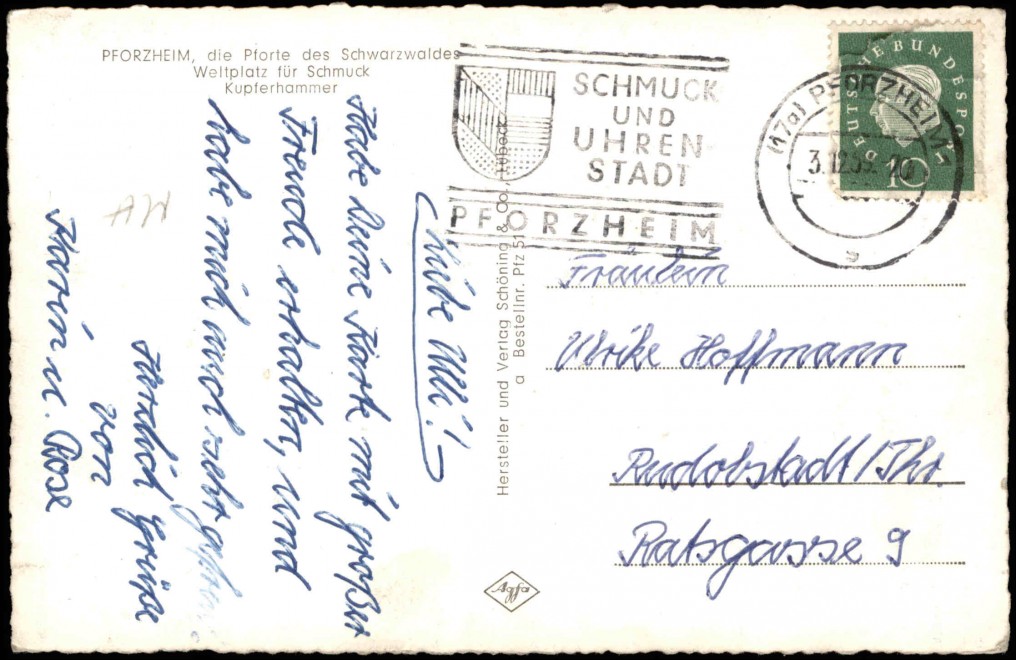 PFORZHEIM, die Pforte des Schwarzwaldes
Weltplatz für Schmuck
Kupferhammer
SCHMUCK
UND
UHREN-
STADT
PFORZHEIM
(17a) PFORZHEIM
3.12.59. 20
s
DEUTSCHE BUNDESPOST
10
Liebe Ulli!
Habe Deine Karte mit großer
Freude erhalten, und
habe mich auch sehr
Herzlich Grüße
von
Karin u. Rose
Hersteller und Verlag Schöning & Co., Lübeck
a Bestellnr. Pfz 51
Fräulein
Ulrike Hoffmann
Rudolstadt/Thr.
Ratsgasse 9
Agfa